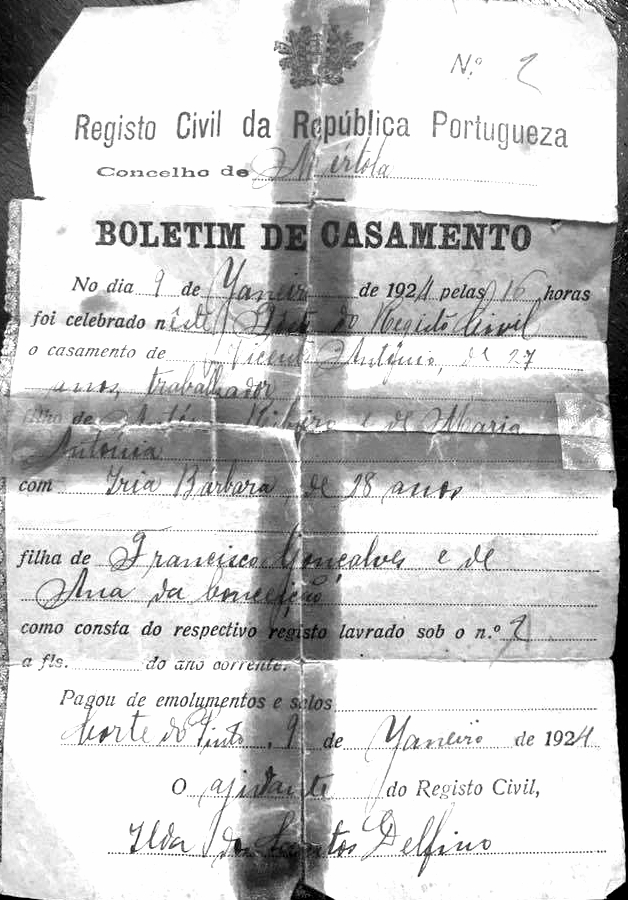 N.º 2
Registo Civil da República Portugueza
Concelho de Mertola
BOLETIM DE CASAMENTO
No dia 9 de Janeiro de 1924 pelas 16 horas
foi celebrado n'este Posto do Registo Civil
o casamento de Vicente António, de 27
anos, trabalhador
filho de António Ribeiro e de Maria
Antonia
com Iria Bárbara de 28 anos
filha de Francisco Gonçalves e de
Ana da Conceição
como consta do respectivo registo lavrado sob o n.º 2
a fls. do ano corrente.
Pagou de emolumentos e selos
Corte do Pinto, 9 de Janeiro de 1924
O ajudante do Registo Civil,
Ilda dos Santos Delfino